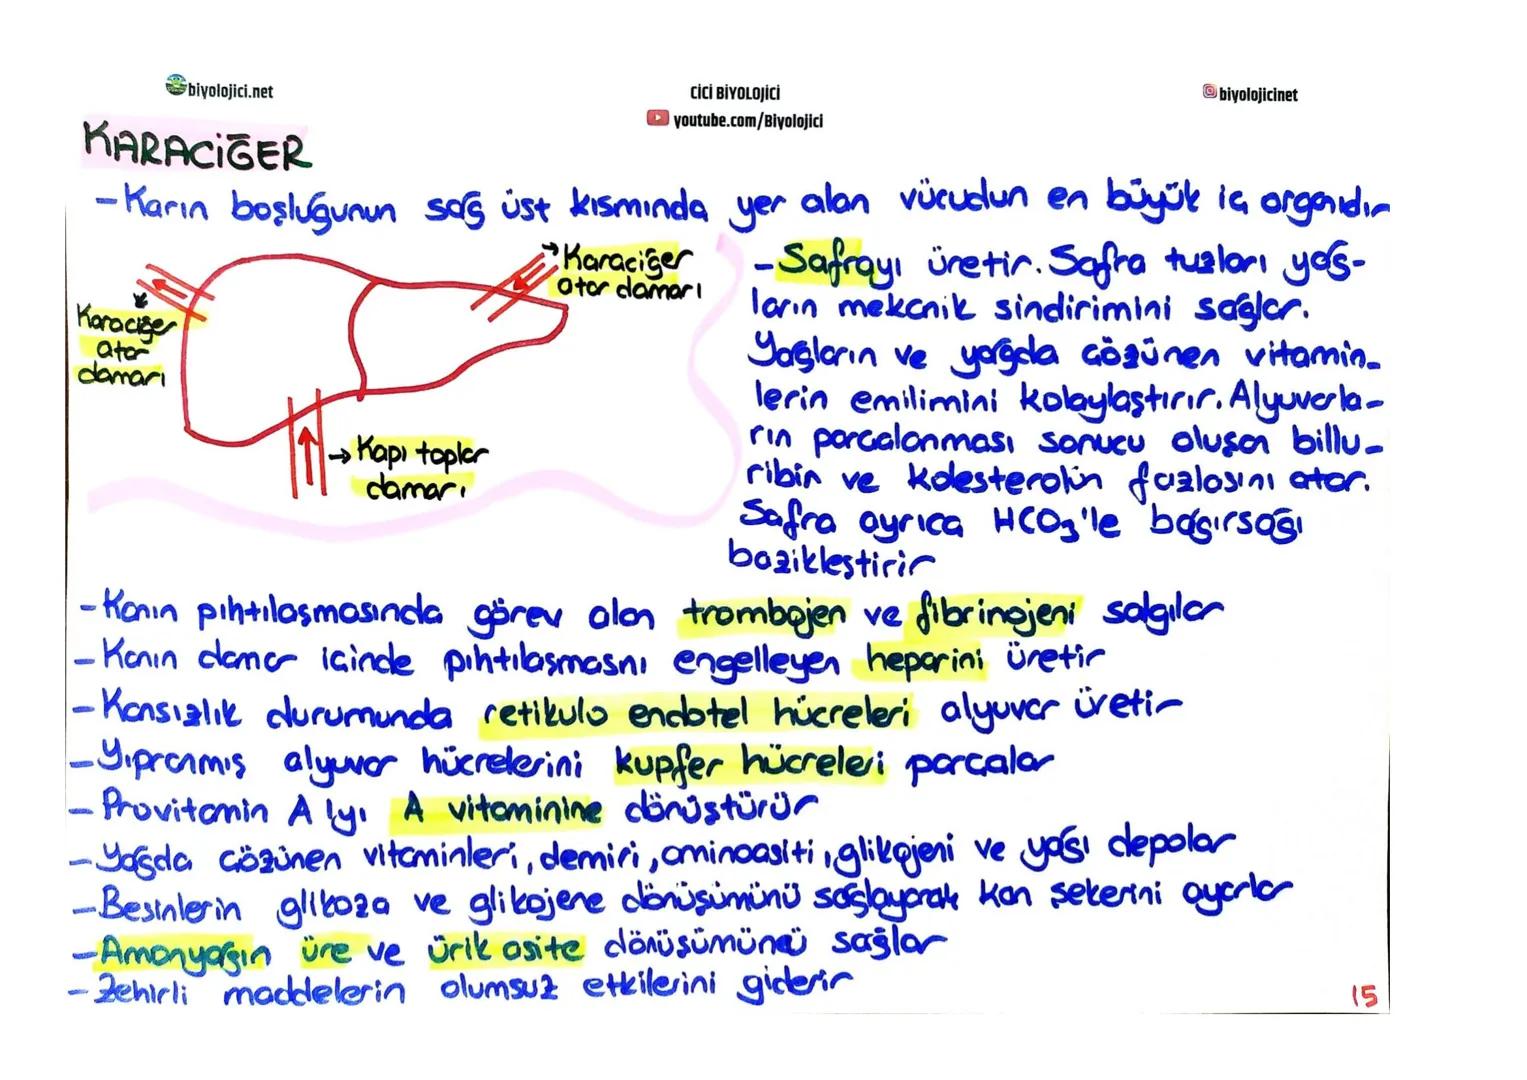 biyolojici.net
CİCİ BİYOLOJİCİ
youtube.com/Biyolojici
biyolojicinet
KARACİĞER
- Karın boşluğunun sağ üst kısmında yer alan vücudun en büyük iç organıdır
Karaciğer
atar
damarı
Karaciğer
atar damarı
Kapı toplar
damarı
- Safrayı üretir. Safra tuzları yağ-
ların mekanik sindirimini sağlar.
Yağların ve yağda çözünen vitamin-
lerin emilimini kolaylaştırır. Alyuvarla-
rın parçalanması sonucu oluşan billu-
ribin ve kolesterolün fazlasını atar.
Safra ayrıca HCO3'le bağırsağı
bazikleştirir
- Kanın pıhtılaşmasında görev alan trombojen ve fibrinojeni salgılar
- Kanın damar içinde pıhtılaşmasnı engelleyen heparini üretir
- Kansızlık durumunda retikulo endotel hücreleri alyuvar üretir
- Yıpranmış alyuvar hücrelerini kupfer hücreleri parçalar
- Provitamin A 'yı A vitaminine dönüştürür
- Yağda çözünen vitaminleri, demiri, aminoasiti, glikojeni ve yağı depolar
- Besinlerin glikoza ve glikojene dönüşümünü sağlayarak kan şekerini ayarlar
- Amonyağın üre ve ürik asite dönüşümünü sağlar
- Zehirli maddelerin olumsuz etkilerini giderir
15